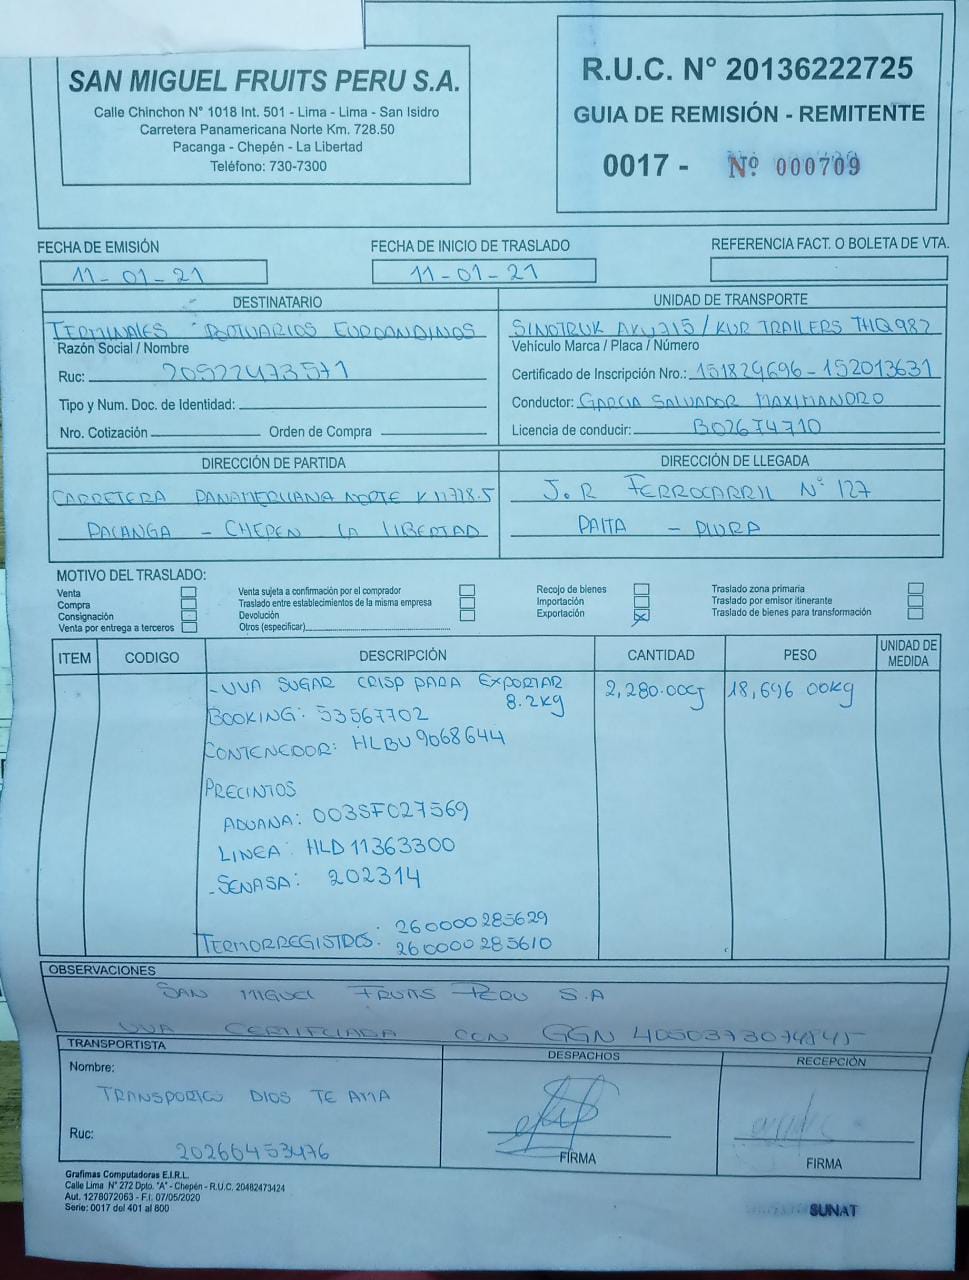 SAN MIGUEL FRUITS PERU S.A.
Calle Chinchon N° 1018 Int. 501 - Lima - Lima - San Isidro
Carretera Panamericana Norte Km. 728.50
Pacanga - Chepén - La Libertad
Teléfono: 730-7300
R.U.C. N° 20136222725
GUIA DE REMISIÓN - REMITENTE
0017 - Nº 000709
FECHA DE EMISIÓN
11-01-21
FECHA DE INICIO DE TRASLADO
11-01-21
REFERENCIA FACT. O BOLETA DE VTA.
DESTINATARIO
TERMINALES PORTUARIOS EUROANDINOS
Razón Social / Nombre
Ruc: 20522473571
Tipo y Num. Doc. de Identidad:
Nro. Cotización Orden de Compra
UNIDAD DE TRANSPORTE
SINOTRUK AKU715 / KUR TRAILERS THQ982
Vehículo Marca / Placa / Número
Certificado de Inscripción Nro.: 151829696-152013631
Conductor: GARCIA SALVADOR MAXIMANDRO
Licencia de conducir: B02674710
DIRECCIÓN DE PARTIDA
CARRETERA PANAMERICANA NORTE KM728.5
PACANGA - CHEPEN LA LIBERTAD
DIRECCIÓN DE LLEGADA
J.R FERROCARRIL N° 127
PAITA - PIURA
MOTIVO DEL TRASLADO:
Venta
Compra
Consignación
Venta por entrega a terceros
Venta sujeta a confirmación por el comprador
Traslado entre establecimientos de la misma empresa
Devolución
Otros (especificar)
Recojo de bienes
Importación
Exportación
Traslado zona primaria
Traslado por emisor itinerante
Traslado de bienes para transformación
ITEM CODIGO DESCRIPCIÓN CANTIDAD PESO UNIDAD DE MEDIDA
-UVA SUGAR CRISP PARA EXPORTAR 2,280.00cj 18,696.00kg
8.2kg
BOOKING: 53567702
CONTENEDOR: HLBU9068644
PRECINTOS
ADUANA: 003SF027569
LINEA: HLD11363300
-SENASA: 202314
TERMORREGISTROS: 260000285629
260000285610
OBSERVACIONES
SAN MIGUEL FRUITS PERU S.A
UVA CERTIFICADA CON GGN
TRANSPORTISTA
Nombre:
TRANSPORTES DIOS TE AMA
Ruc:
20266453476
DESPACHOS
FIRMA
RECEPCIÓN
FIRMA
Grafimas Computadoras E.I.R.L.
Calle Lima N° 272 Dpto. "A" - Chepén - R.U.C. 20482473424
Aut. 1278072063 - F.I. 07/05/2020
Serie: 0017 del 401 al 800
SUNAT